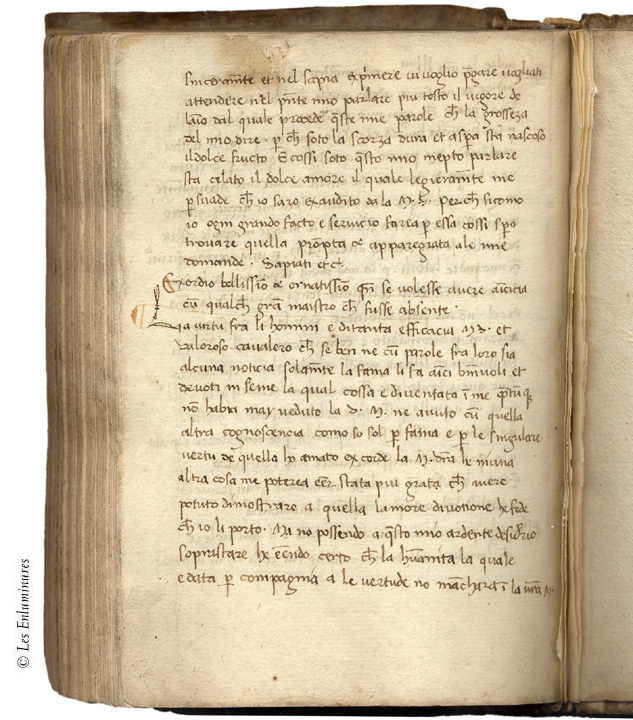 sinceram̃te et nel sapia exp̃mere vi voglio p̃gare vogliati
attendere nel p̃nte mio parlare piu tosto il vigore de
laĩo dal quale procede q̃ste mie parole ch̃ la grosseza
del mio dire · p ch̃ soto la scorza dura et aspra sta nascoso
il dolce fructo E cossi soto q̃sto mio inepto parlare
sta celato il dolce amore il quale legieram̃te me
p suade ch̃ io saro exaudito da la M. S. Perch̃ sicomo
io ogni grando facto e servicio farea p essa cossi spo
trovare quella prõpta & apparegiata ale mie
domande · Sapiati etc̃.
Exordio bellissĩo & ornatissĩo qñ se volesse avere amicicia
cũ qualch̃ grã maistro ch̃ fusse absente ·
La virtu fra li homini e ditanta efficacia M. S. et
valoroso cavalero ch̃ se ben ne cũ parole fra loro sia
alcuna noticia solam̃te la fama li fa amici bñivoli et
devoti inseme la qual cossa e diventata ĩ me q̃tũq̃
nõ habia may veduto la S. M. ne avuto cũ quella
altra cognoscencia como so sol p fama e p le singulare
vertu de quella ho amato ex corde la M. vr̃a he niuna
altra cosa me poterea eẽr stata piu grata ch̃ avere
potuto dimostrare a quella lamore divotione he fede
ch̃ io li porto · Ma no possendo a q̃sto mio ardente desid̃rio
soprastare he eẽndo certo ch̃ la hũanita la quale
e data p compagnia a le vertude no mãchara ĩ la vr̃a M.
© Les Enluminures